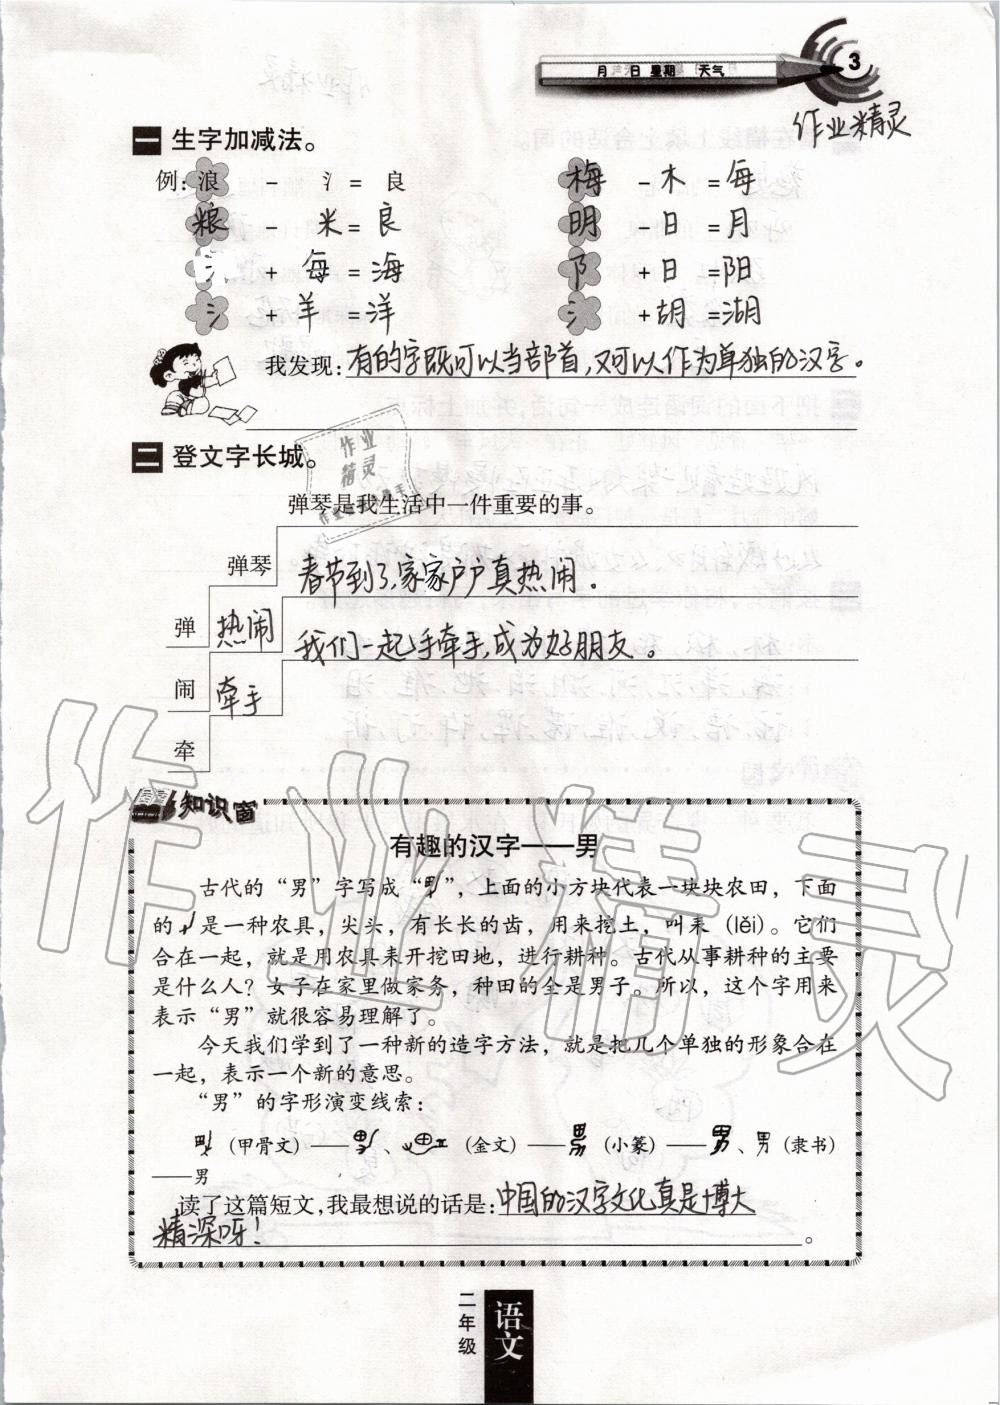 月 日 星期 天气 3
作业精灵
一 生字加减法。
例：浪 - 氵 = 良 梅 - 木 = 每
粮 - 米 = 良 明 日 = 月
+ 每 = 海 阝 + 日 = 阳
氵 + 羊 = 洋 氵 + 胡 = 湖
我发现：有的字既可以当部首，又可以作为单独的汉字。
二 登文字长城。
作业
精灵
弹琴是我生活中一件重要的事。
弹琴 春节到了，家家户户真热闹。
弹 热闹 我们一起手牵手，成为好朋友。
闹 牵手
牵
作业精灵
知识窗
有趣的汉字——男
古代的“男”字写成“”，上面的小方块代表一块块农田，下面
的 是一种农具，尖头，有长长的齿，用来挖土，叫耒（lěi）。它们
合在一起，就是用农具来开挖田地，进行耕种。古代从事耕种的主要
是什么人？女子在家里做家务，种田的全是男子。所以，这个字用来
表示“男”就很容易理解了。
今天我们学到了一种新的造字方法，就是把几个单独的形象合在
一起，表示一个新的意思。
“男”的字形演变线索：
（甲骨文）—— 、 （金文）—— （小篆）—— 男、男（隶书）
——男
读了这篇短文，我最想说的话是：中国的汉字文化真是博大
精深呀！。
二年级
语文